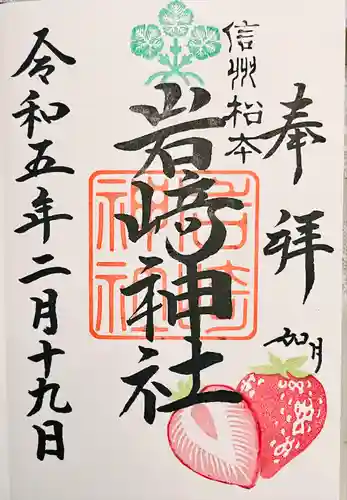 奉拝
如月
信州松本
岩﨑神社
岩﨑神社
令和五年二月十九日